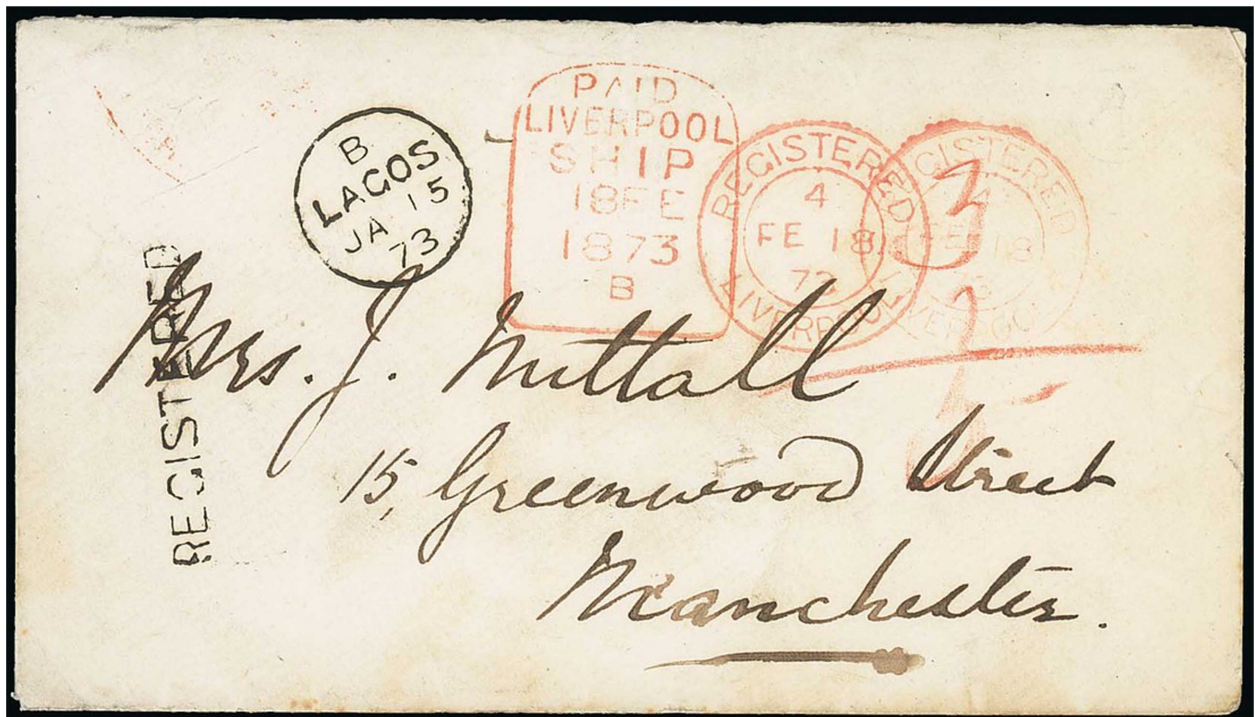 B
LAGOS
JA 15
73
PAID
LIVERPOOL
SHIP
18FE
1873
B
REGISTERED
4
FE 18
73
LIVERPOOL
REGISTERED
4
FE 18
73
LIVERPOOL
3
REGISTERED
Mrs. J. Nuttall
15, Greenwood Street
Manchester.